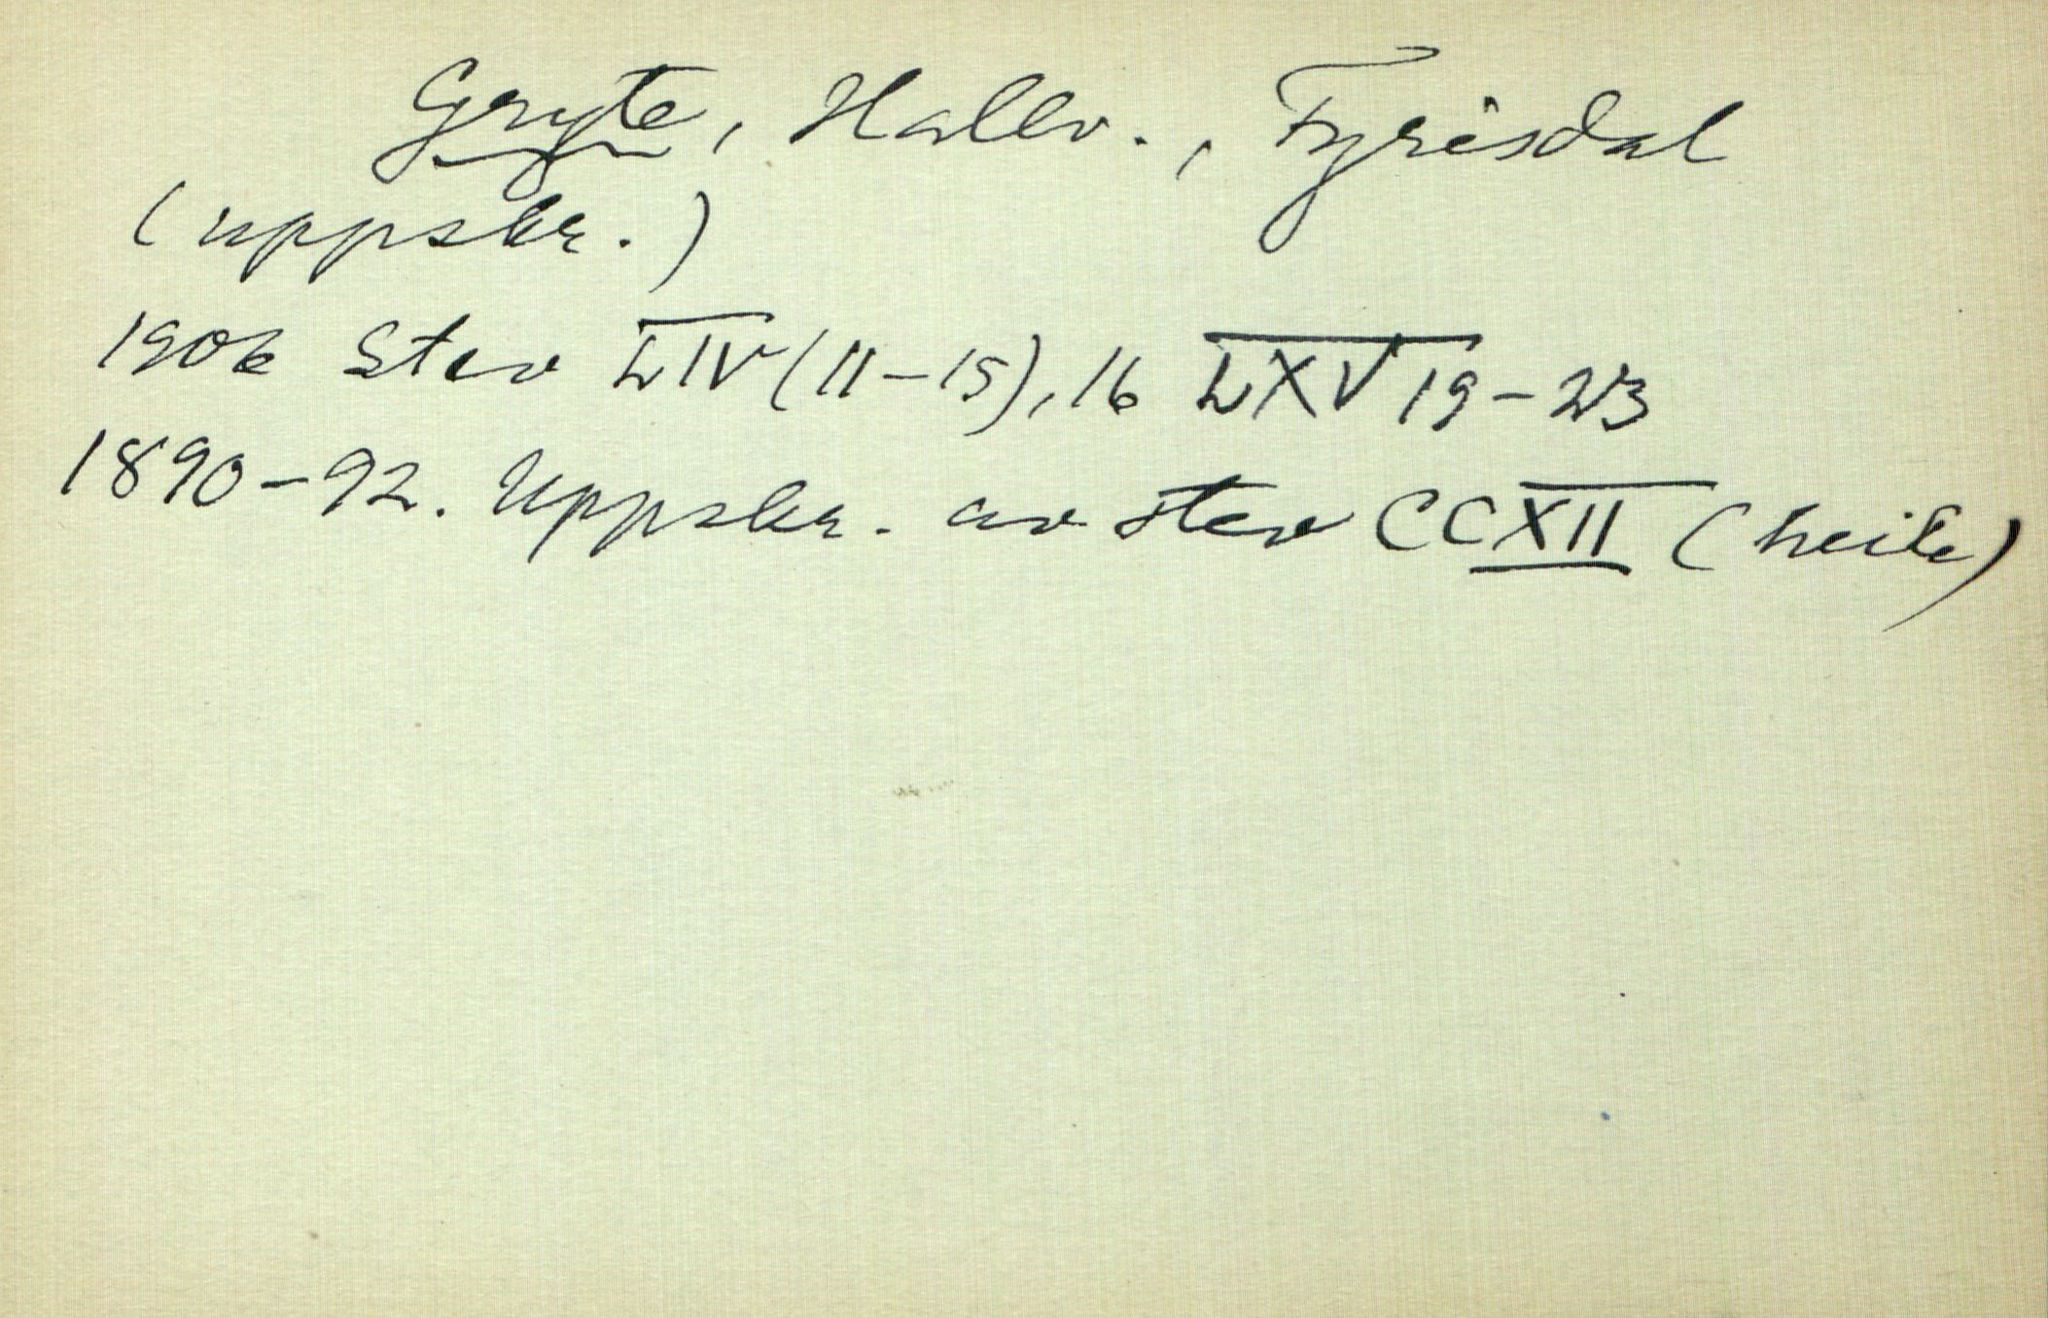 Gryte, Hallv., Fyrisdal
(uppskr.)
1906 Stev LIV (11-15), 16 LXV 19-23
1890-92. Uppskr. av stev CCXII (heile)